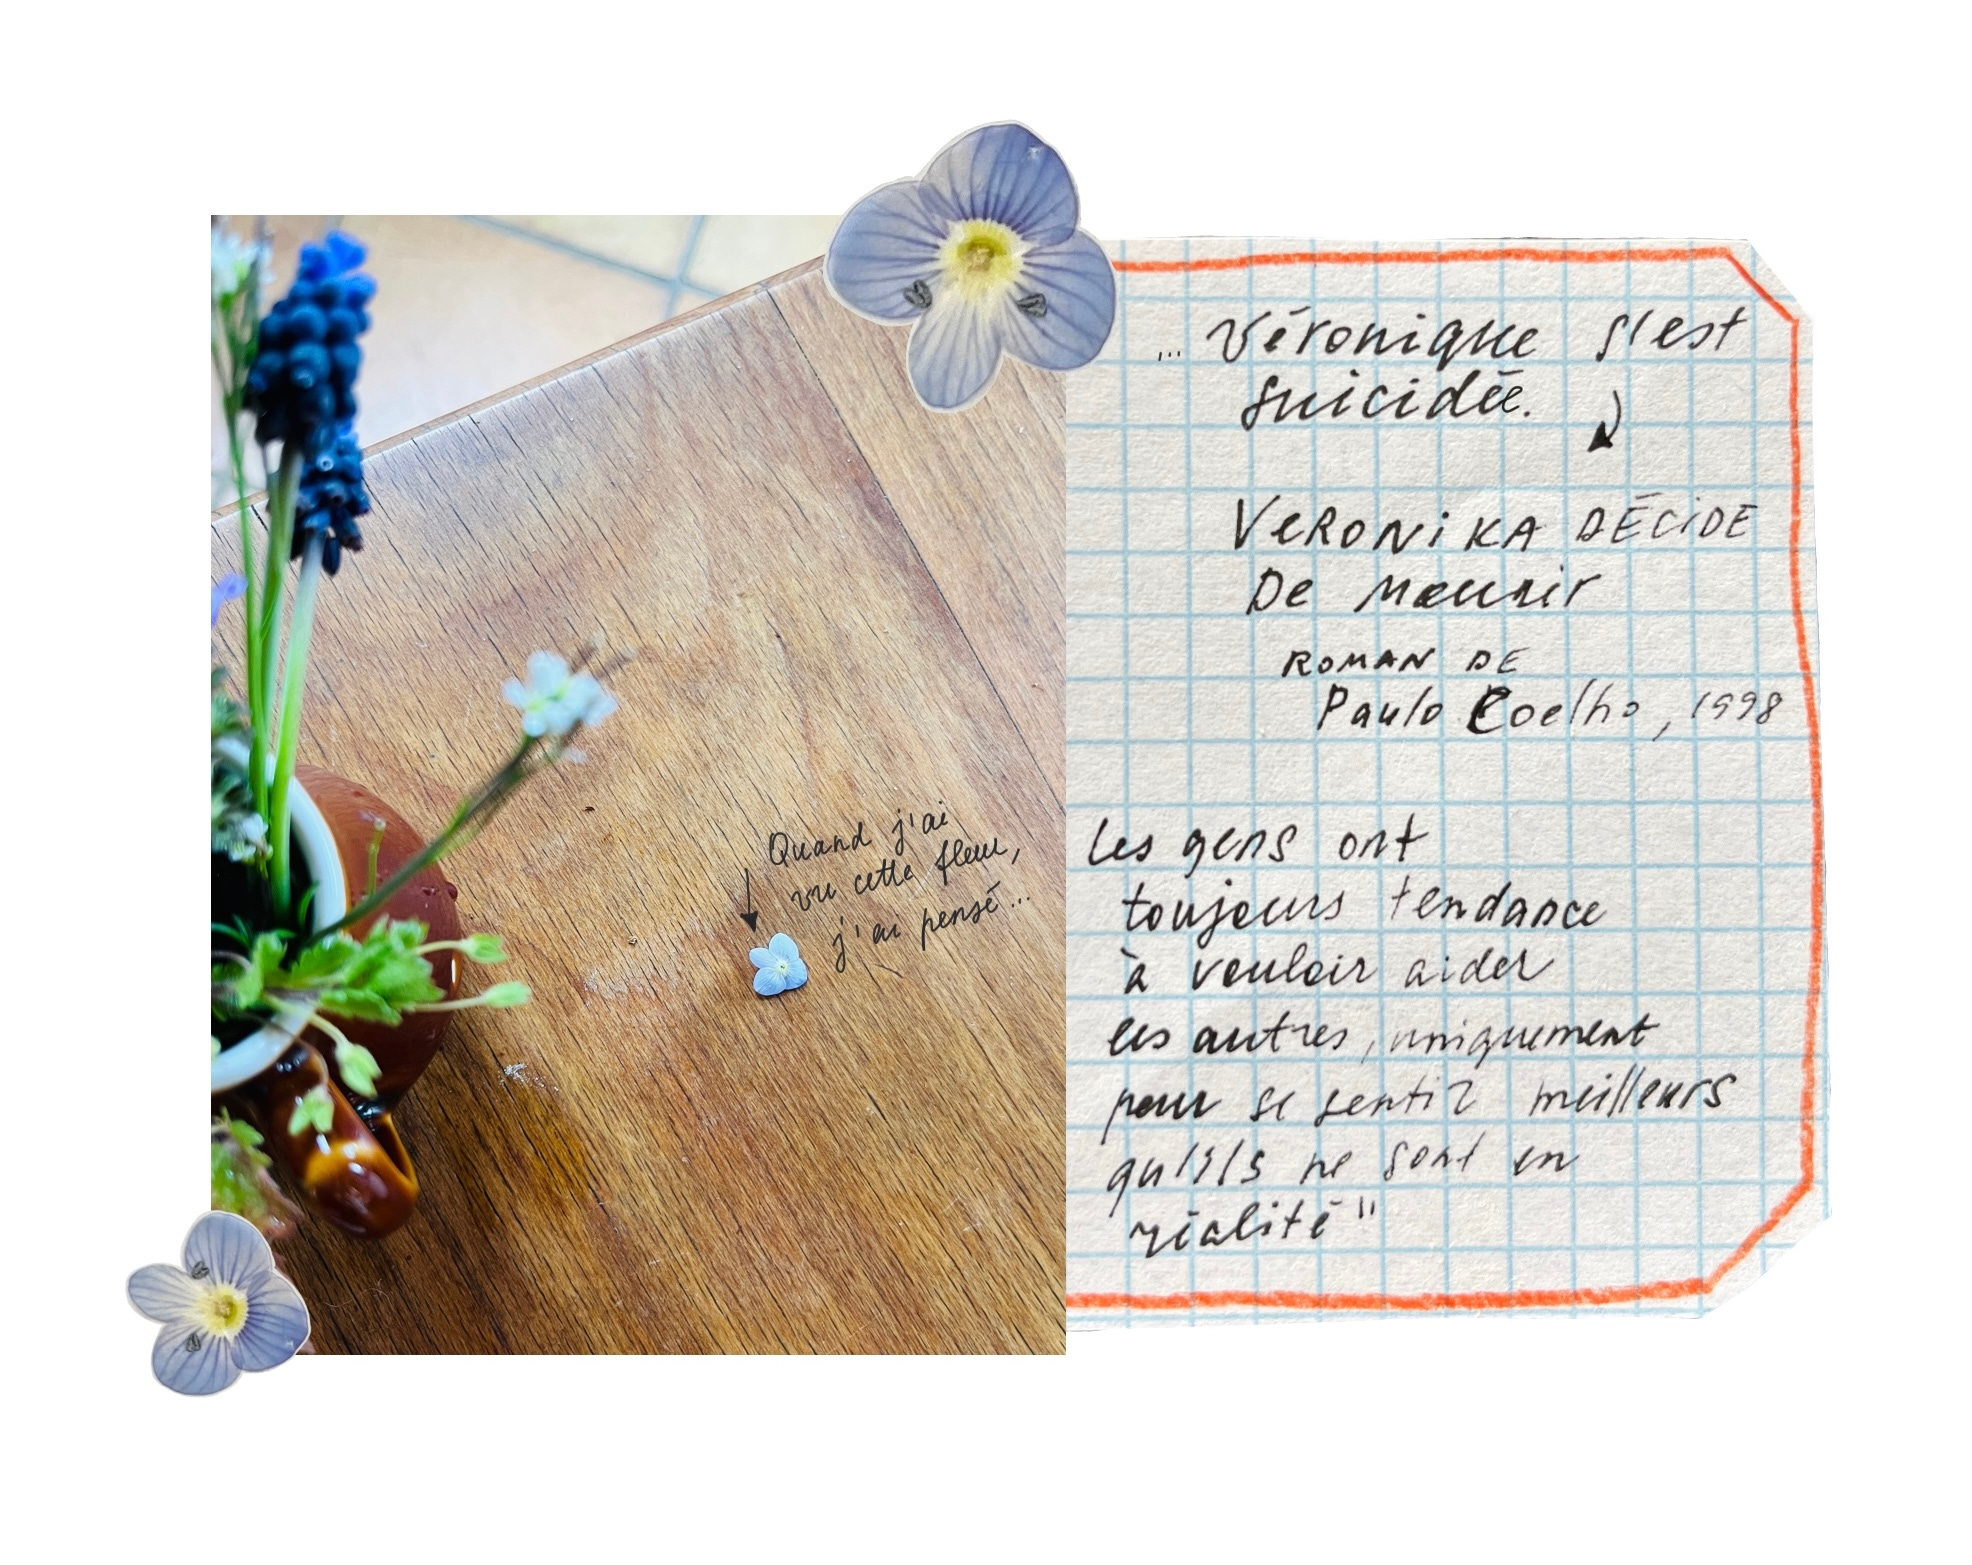 Quand j'ai
vu cette fleur,
j'ai pensé...
... Véronique s'est
suicidée.
VERONIKA DÉCIDE
De Mourir
ROMAN DE
Paulo Coelho, 1998
Les gens ont
toujours tendance
à vouloir aider
les autres, uniquement
pour se sentir meilleurs
qu'ils ne sont en
réalité"